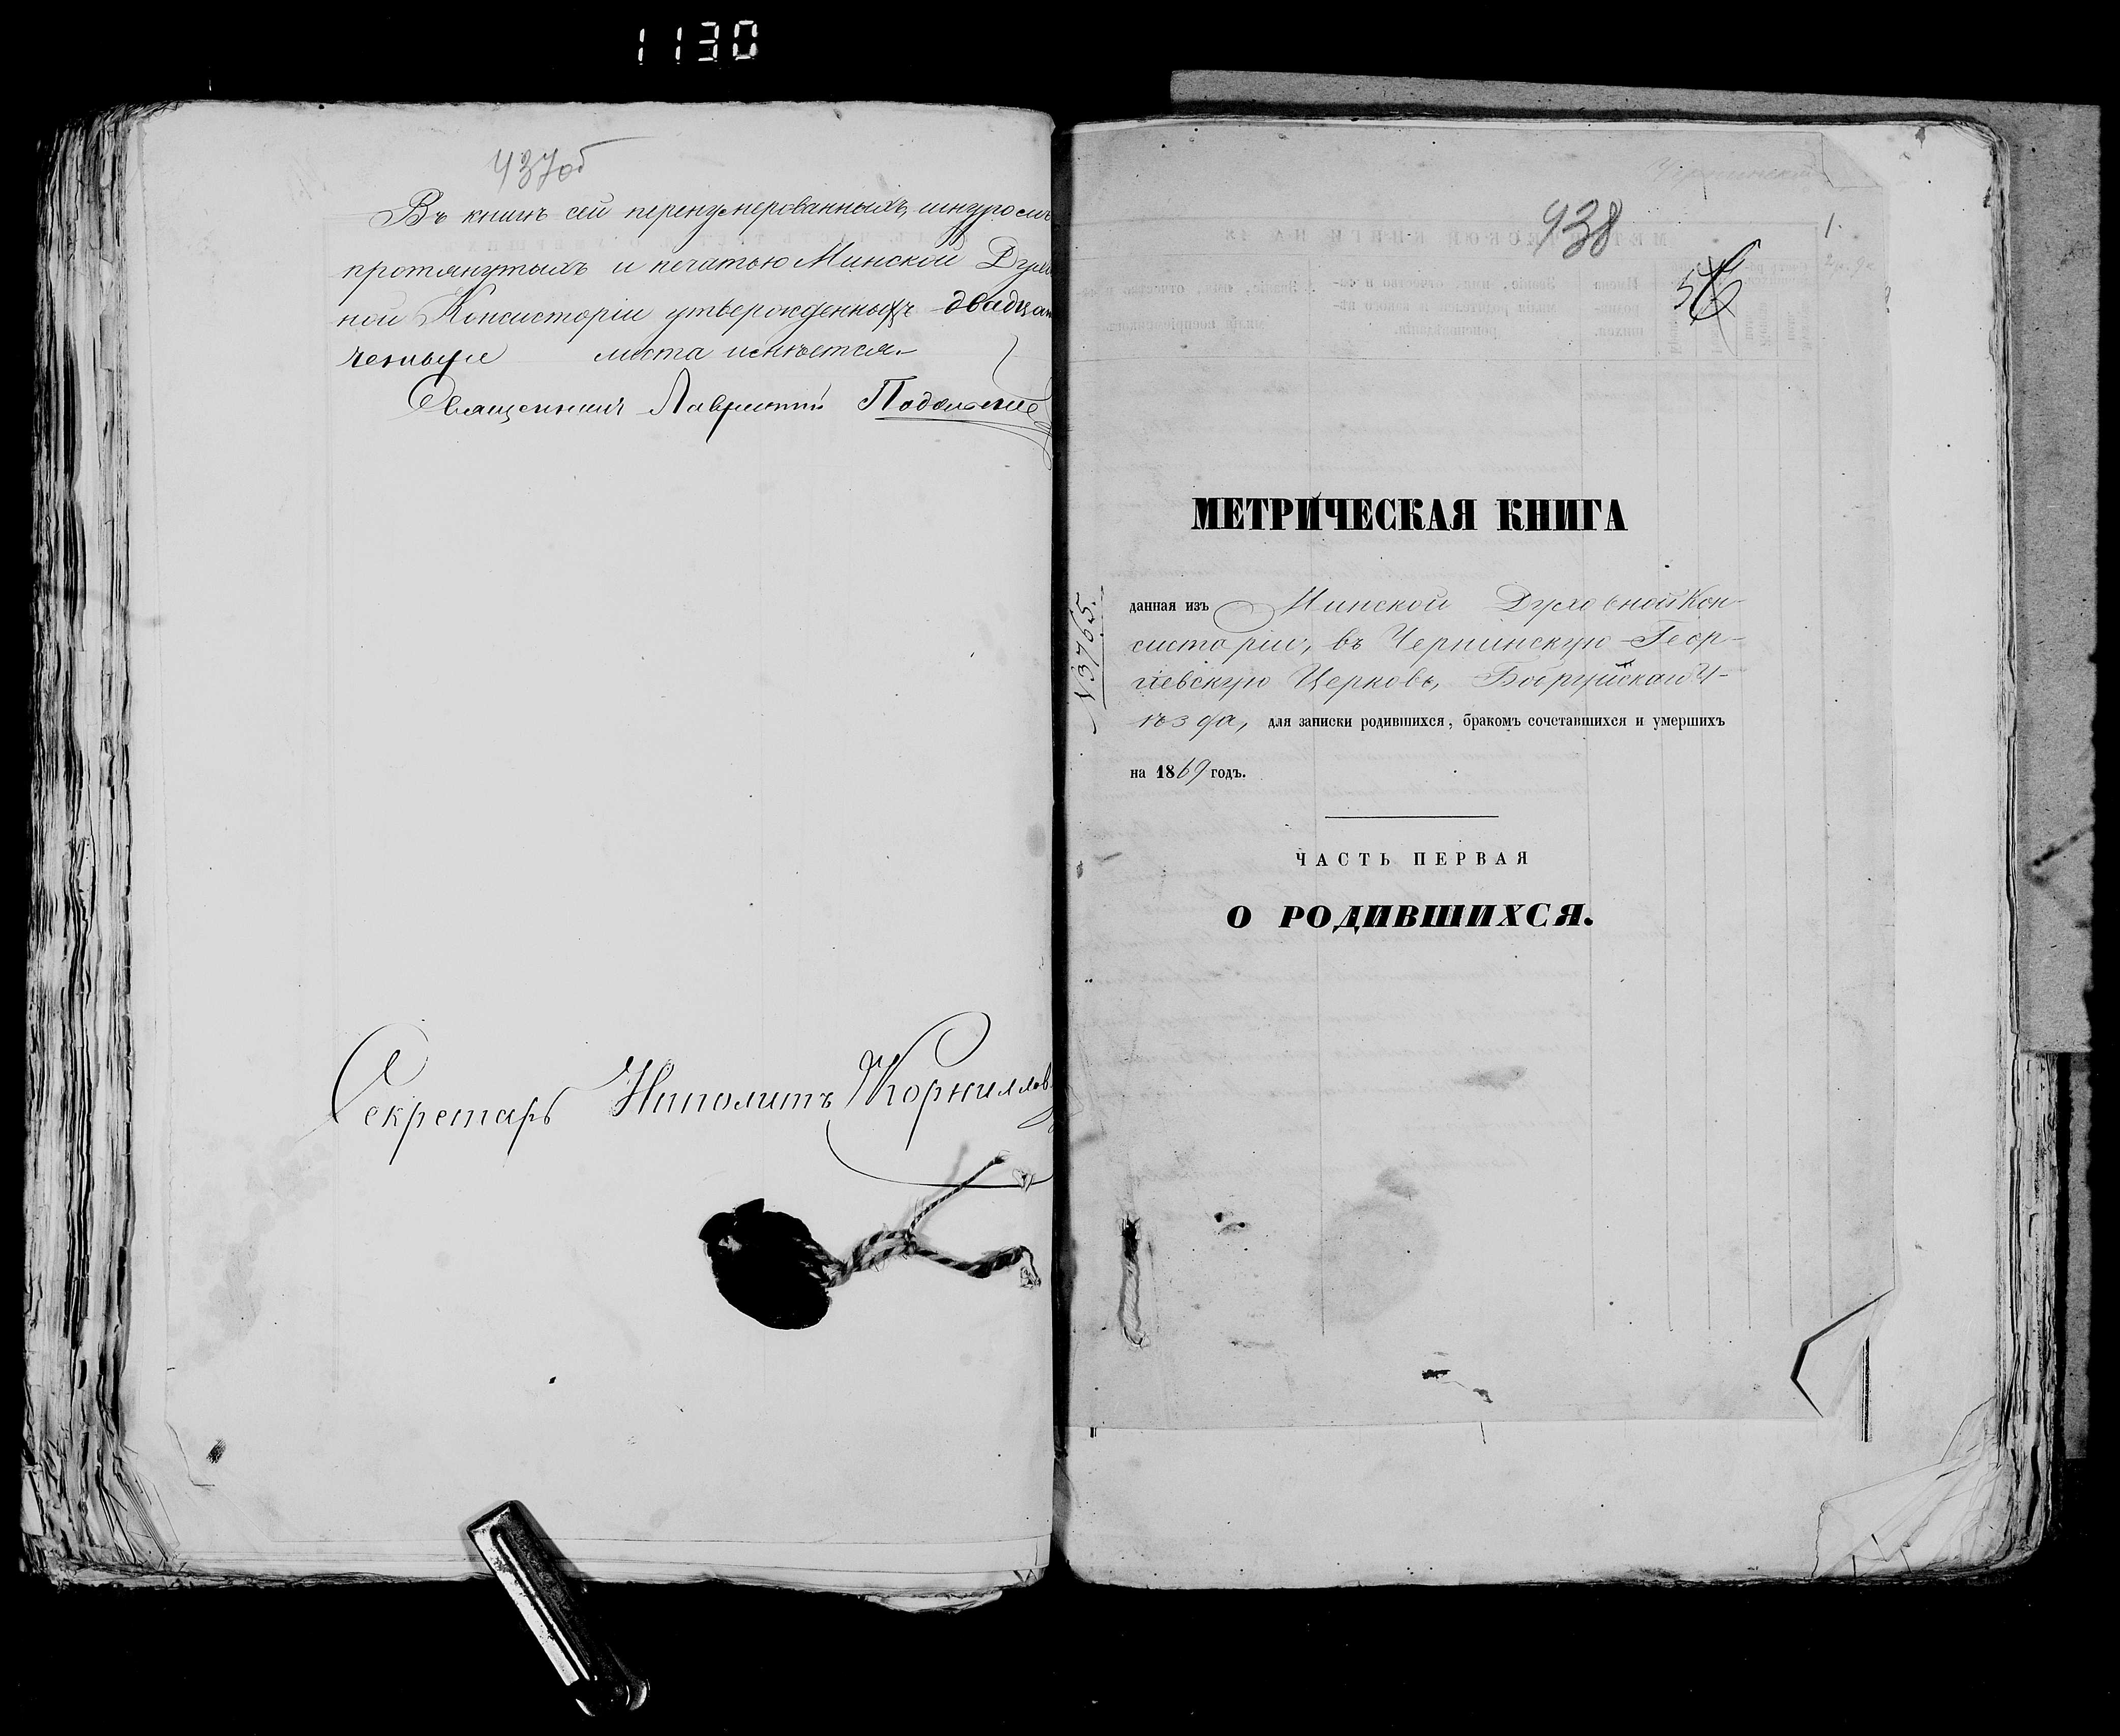 1130
437об
Въ книгѣ сей перенумерованныхъ, шнуромъ
протянутыхъ и печатью Минской Духо
ной Консисторіи утвержденныхъ двадцат
четыре листа имѣется.
Священникъ Лаврентій
Секретарь Ипполитъ Корнилов
438
1.
МЕТРИЧЕСКАЯ КНИГА
№3765.
данная изъ Минской Духовной Кон-
систоріи, въ Чернинскую Геор-
гіевскую Церковь, Бобруйскаго У-
ѣзда, для записки родившихся, бракомъ сочетавшихся и умершихъ
на 1869 годъ.
ЧАСТЬ ПЕРВАЯ
О РОДИВШИХСЯ.